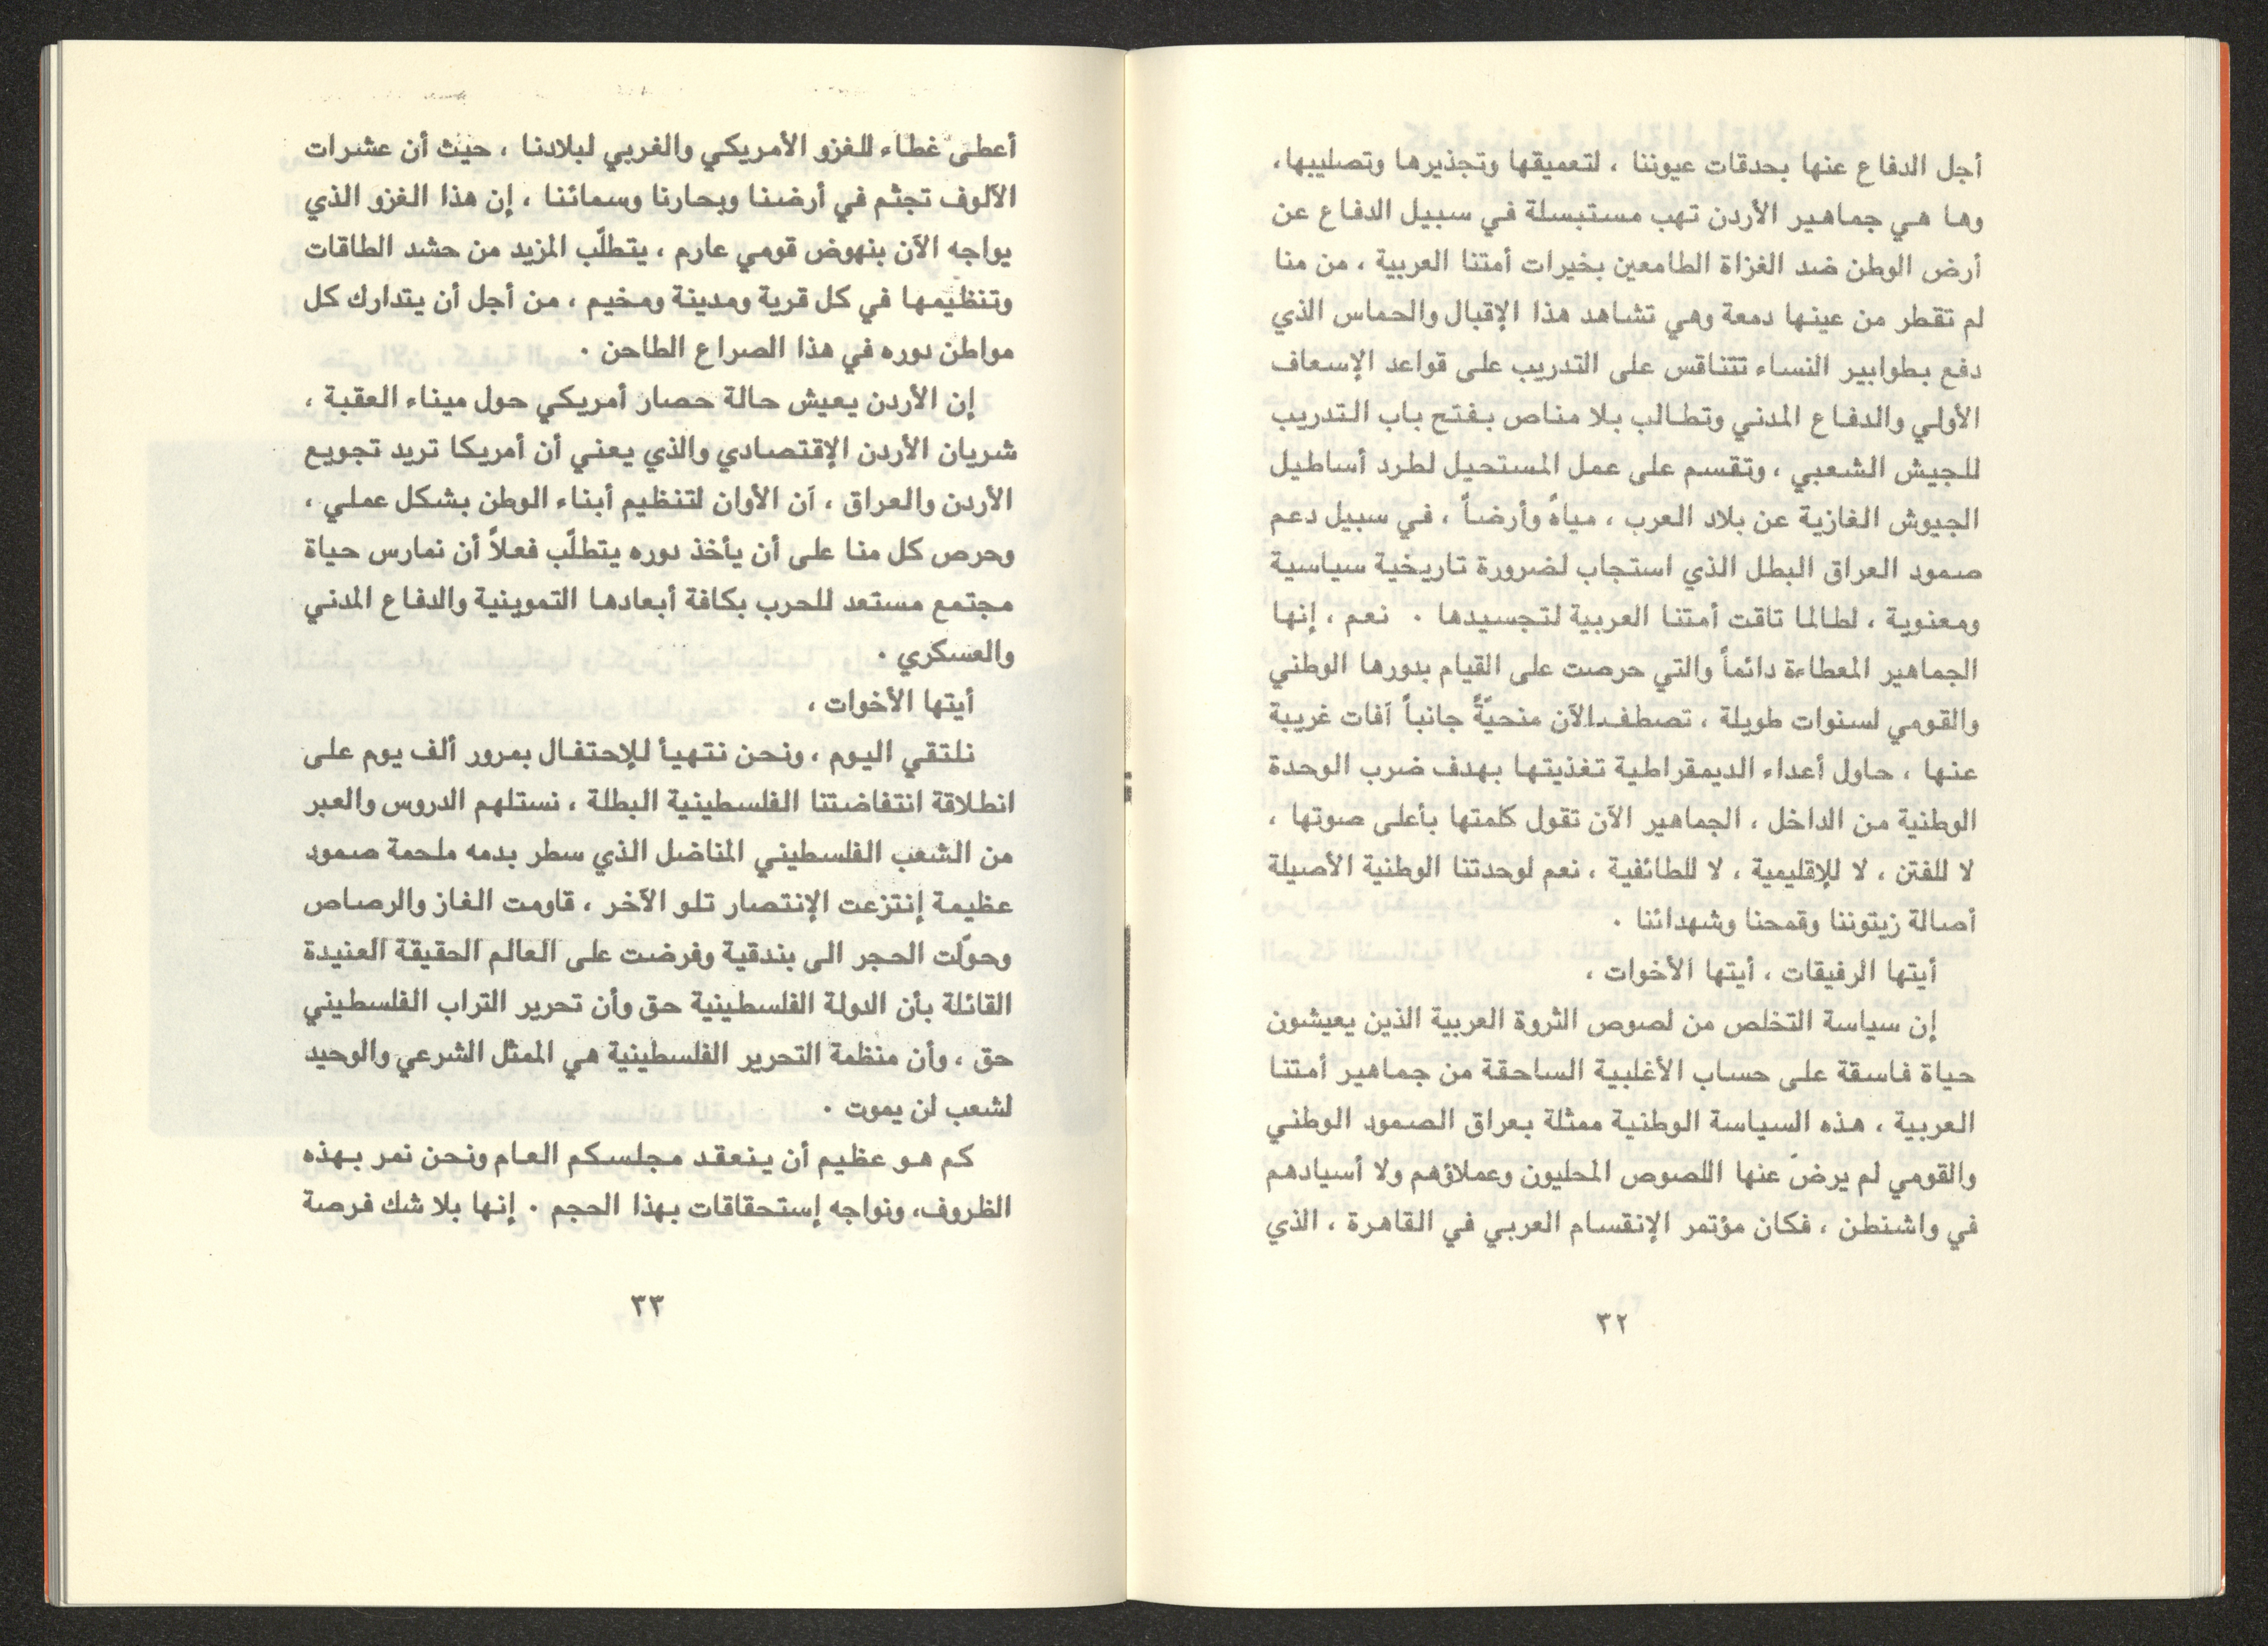 أجل الدفاع عنها بحدقات عيوننا ، لتعميقها وتجذيرها وتصليبها،
وها هي جماهير الأردن تهب مستبسلة في سبيل الدفاع عن
أرض الوطن ضد الغزاة الطامعين بخيرات أمتنا العربية ، من منا
لم تقطر من عينها دمعة وهي تشاهد هذا الإقبال والحماس الذي
دفع بطوابير النساء تتناقس على التدريب على قواعد الإسعاف
الأولي والدفاع المدني وتطالب بلا مناص بفتح باب التدريب
للجيش الشعبي ، وتقسم على عمل المستحيل لطرد أساطيل
الجيوش الغازية عن بلاد العرب ، مياهً وأرضاً ، في سبيل دعم
صمود العراق البطل الذي استجاب لضرورة تاريخية سياسية
ومعنوية ، لطالما تاقت أمتنا العربية لتجسيدها . نعم ، إنها
الجماهير المعطاءة دائماً والتي حرصت على القيام بدورها الوطني
والقومي لسنوات طويلة ، تصطف الآن منحيّةً جانباً آفات غريبة
عنها ، حاول أعداء الديمقراطية تغذيتها بهدف ضرب الوحدة
الوطنية من الداخل ، الجماهير الآن تقول كلمتها بأعلى صوتها ،
لا للفتن ، لا للإقليمية ، لا للطائفية ، نعم لوحدتنا الوطنية الأصيلة
أصالة زيتوننا وقمحنا وشهدائنا .
أيتها الرفيقات ، أيتها الأخوات ،
إن سياسة التخلص من لصوص الثروة العربية الذين يعيشون
حياة فاسقة على حساب الأغلبية الساحقة من جماهير أمتنا
العربية ، هذه السياسة الوطنية ممثلة بعراق الصمود الوطني
والقومي لم يرضَ عنها اللصوص المحليون وعملاؤهم ولا أسيادهم
في واشنطن ، فكان مؤتمر الإنقسام العربي في القاهرة ، الذي
٣٢
أعطى غطاء للغزو الأمريكي والغربي لبلادنا ، حيث أن عشرات
الآلوف تجثم في أرضنا وبحارنا وسمائنا ، إن هذا الغزو الذي
يواجه الآن بنهوض قومي عارم ، يتطلّب المزيد من حشد الطاقات
وتنظيمها في كل قرية ومدينة ومخيم ، من أجل أن يتدارك كل
مواطن دوره في هذا الصراع الطاحن .
إن الأردن يعيش حالة حصار أمريكي حول ميناء العقبة ،
شريان الأردن الإقتصادي والذي يعني أن أمريكا تريد تجويع
الأردن والعراق ، آن الأوان لتنظيم أبناء الوطن بشكل عملي ،
وحرص كل منا على أن يأخذ دوره يتطلّب فعلاً أن نمارس حياة
مجتمع مستعد للحرب بكافة أبعادها التموينية والدفاع المدني
والعسكري .
أيتها الأخوات ،
نلتقي اليوم ، ونحن نتهيأ للإحتفال بمرور ألف يوم على
انطلاقة انتفاضتنا الفلسطينية البطلة ، نستلهم الدروس والعبر
من الشعب الفلسطيني المناضل الذي سطر بدمه ملحمة صمود
عظيمة إنتزعت الإنتصار تلو الآخر ، قاومت الغاز والرصاص
وحوّلت الحجر الى بندقية وفرضت على العالم الحقيقة العنيدة
القائلة بأن الدولة الفلسطينية حق وأن تحرير التراب الفلسطيني
حق ، وأن منظمة التحرير الفلسطينية هي الممثل الشرعي والوحيد
لشعب لن يموت .
كم هو عظيم أن ينعقد مجلسكم العام ونحن نمر بهذه
الظروف، ونواجه إستحقاقات بهذا الحجم . إنها بلا شك فرصة
٣٣